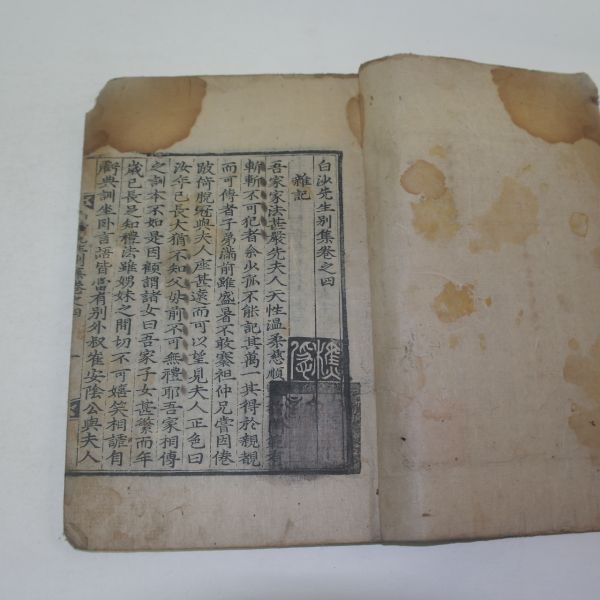 白沙先生別集卷之四
雜記
吾家家法甚嚴先夫人天性溫柔慈順有
斬斬不可犯者余少孤不能記其萬一其得於親覩
而可傳者子弟滿前雖盛暑不敢褰袒仲兄嘗因倦
跛倚脫冠與夫人座甚遠而可以望見夫人正色曰
汝年已長大猶不知父母前不可無禮耶吾家相傳
之訓本不如是因顧謂諸女曰吾家子女甚繁而年
歲已長足知禮法雖娚妹之間切不可嬉笑相謔有
虧典訓坐臥言語皆當有別外叔崔安陰公與夫人